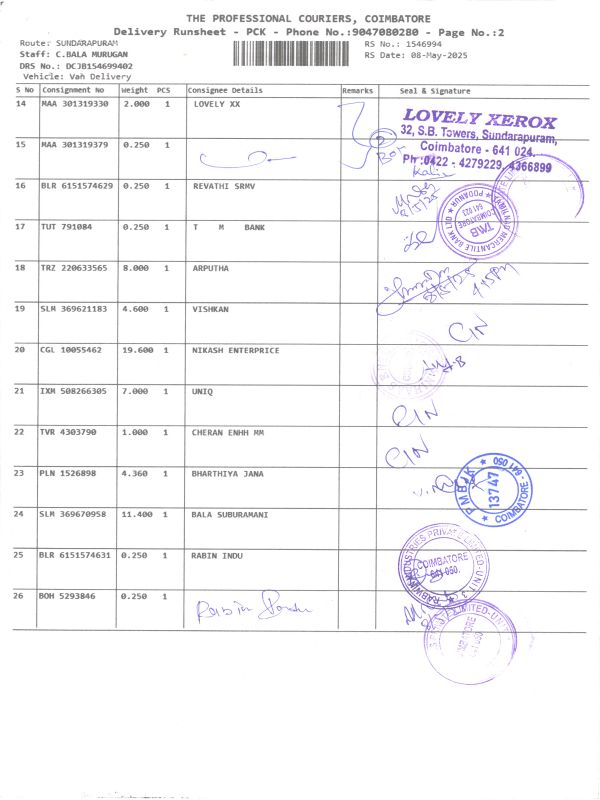 THE PROFESSIONAL COURIERS, COIMBATORE
Delivery Runsheet - PCK - Phone No.:9047080280 - Page No.:2
Route: SUNDARAPURAM
RS No.: 1546994
Staff: C.BALA MURUGAN
RS Date: 08-May-2025
DRS No.: DCJB154699402
Vehicle: Van Delivery
S No Consignment No Weight PCS Consignee Details Remarks Seal & Signature
14 MAA 301319330 2.000 1 LOVELY XX
LOVELY XEROX
32, S.B. Towers, Sundarapuram,
Coimbatore - 641 024.
Ph :0422 - 4279229, 4366899
15 MAA 301319379 0.250 1
16 BLR 6151574629 0.250 1 REVATHI SRMV
17 TUT 791084 0.250 1 T M BANK
TMB
COIMBATORE
641 023
18 TRZ 220633565 8.000 1 ARPUTHA
8/5/25 4:15PM
19 SLM 369621183 4.600 1 VISHKAN
CIN
20 CGL 10055462 19.600 1 NIKASH ENTERPRICE
21 IXM 508266305 7.000 1 UNIQ
CIN
22 TVR 4303790 1.000 1 CHERAN ENHH MM
CIN
23 PLN 1526898 4.360 1 BHARTHIYA JANA
13747
COIMBATORE - 641 050
24 SLM 369670958 11.400 1 BALA SUBURAMANI
25 BLR 6151574631 0.250 1 RABIN INDU
COIMBATORE
641-050.
26 BOH 5293846 0.250 1
Rabin